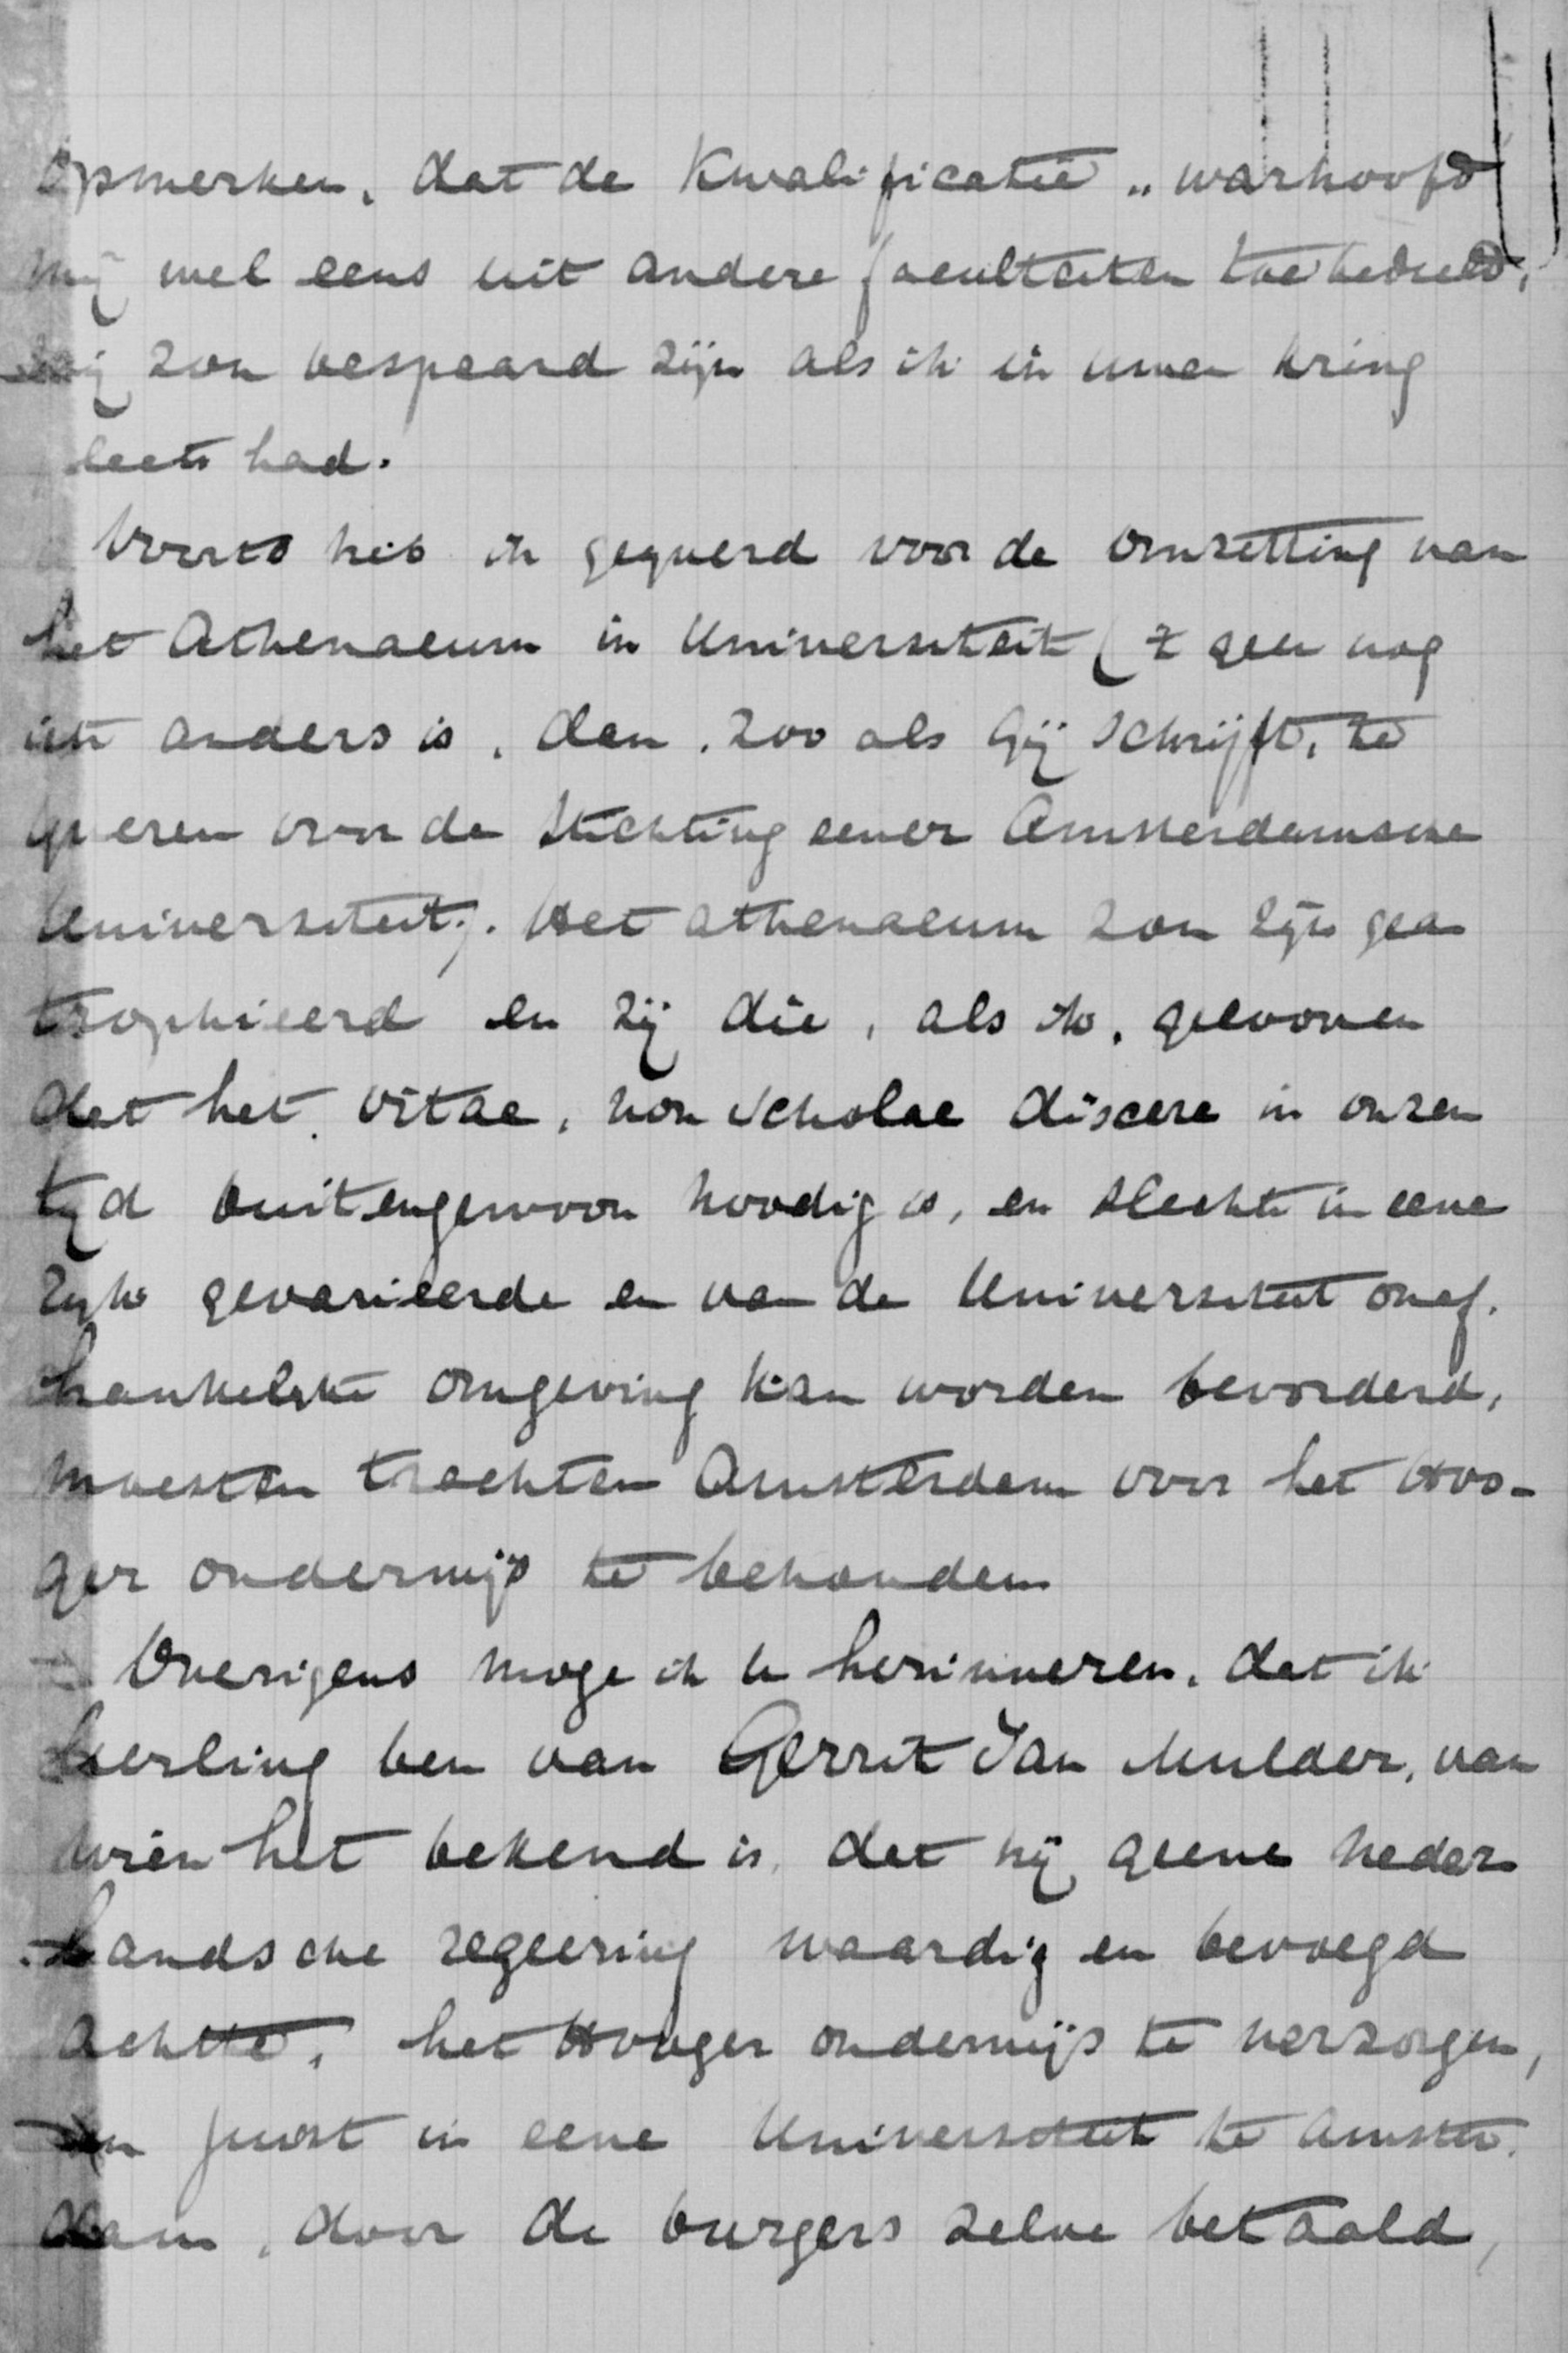 opmerken, dat de kwalificatie „warhoofd
mij wel eens uit andere faculteiten toebedeeld,
mij zou bespaard zijn als ik in uwen kring
les had.
Voorts heb ik geijverd voor de omzetting van
het Athenaeum in Universiteit ('t geen nog
iets anders is, dan, zooals Gij schrijft, te
ijveren voor de stichting eener Amsterdamsche
Universiteit). Het Athenaeum zou zijn gea
trophieerd en zij die, als ik, gelooven
dat het vitae, non scholae discere in onzen
tijd buitengewoon noodig is, en slechts in eene
rijk gevarieerde en van de Universiteit onaf-
hankelijke omgeving kan worden bevorderd,
moesten trachten Amsterdam voor het Hoo-
ger onderwijs te behouden
Overigens moge ik U herinneren, dat ik
leerling ben van Gerrit Jan Mulder, van
wien het bekend is, dat hij geene Neder
landsche regeering waardig en bevoegd
achtte, het Hooger onderwijs te verzorgen,
en juist in eene Universiteit te Amster-
dam, door de burgers zelve betaald,